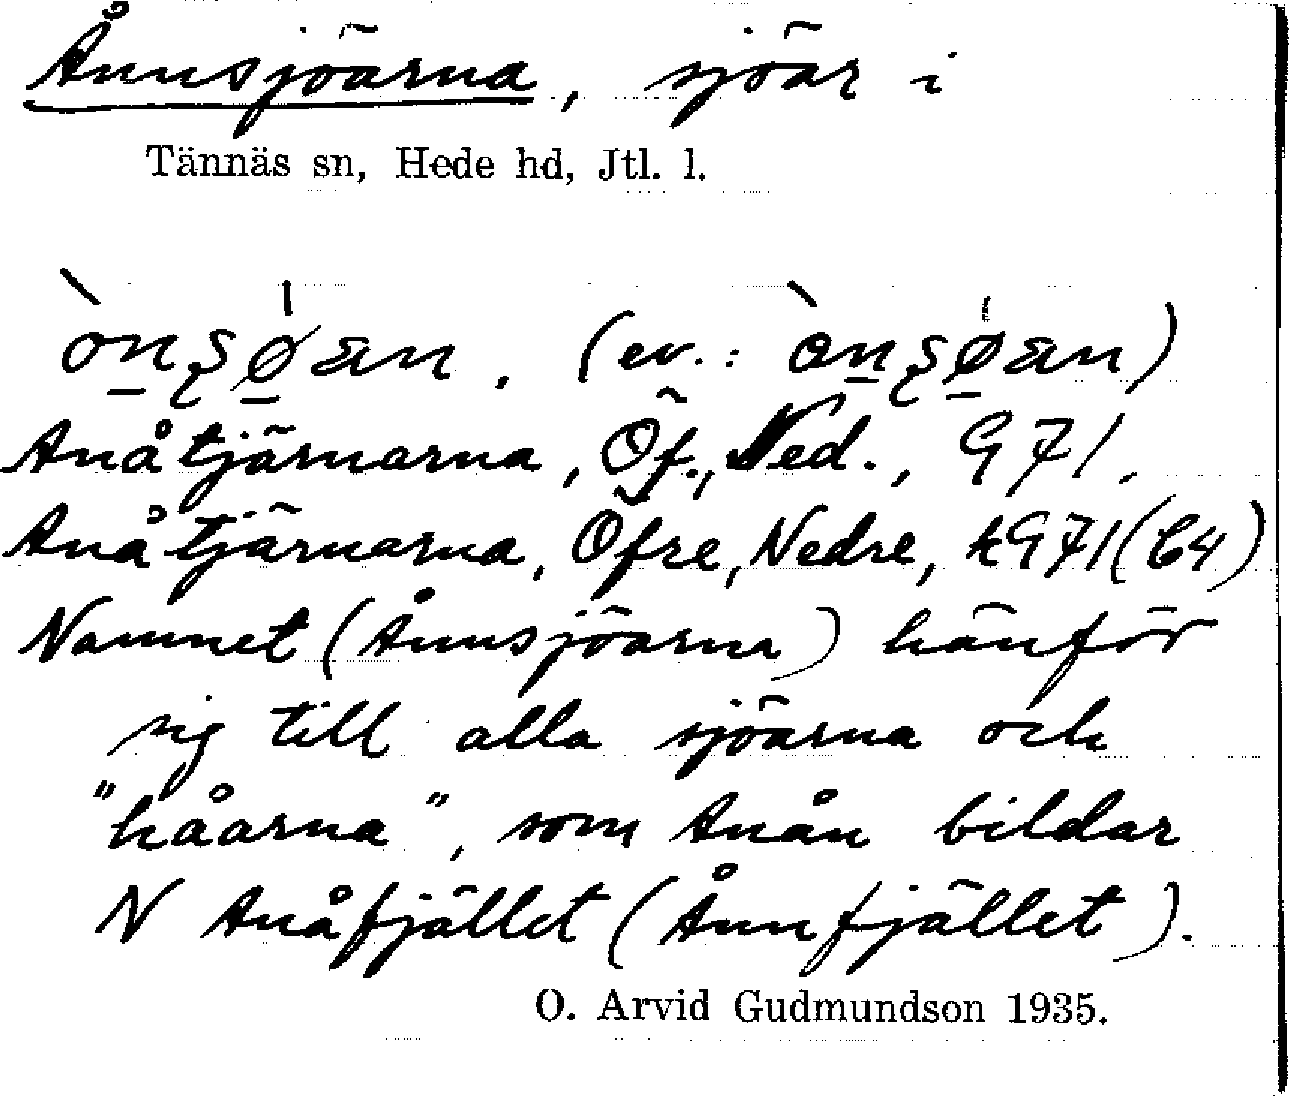 Ånnsjöarna, sjöar i
Tännäs sn, Hede hd, Jtl. l.
Anåtjärnarna, Öf., Ned., G 71.
Anåtjärnarna, Öfre, Nedre, kG 71 (C4)
Namnet (Ånnsjöarna) hänför
sig till alla sjöarna och
"håarna", som Anån bildar
N Anåfjället (Ånnfjället).
O. Arvid Gudmundson 1935.